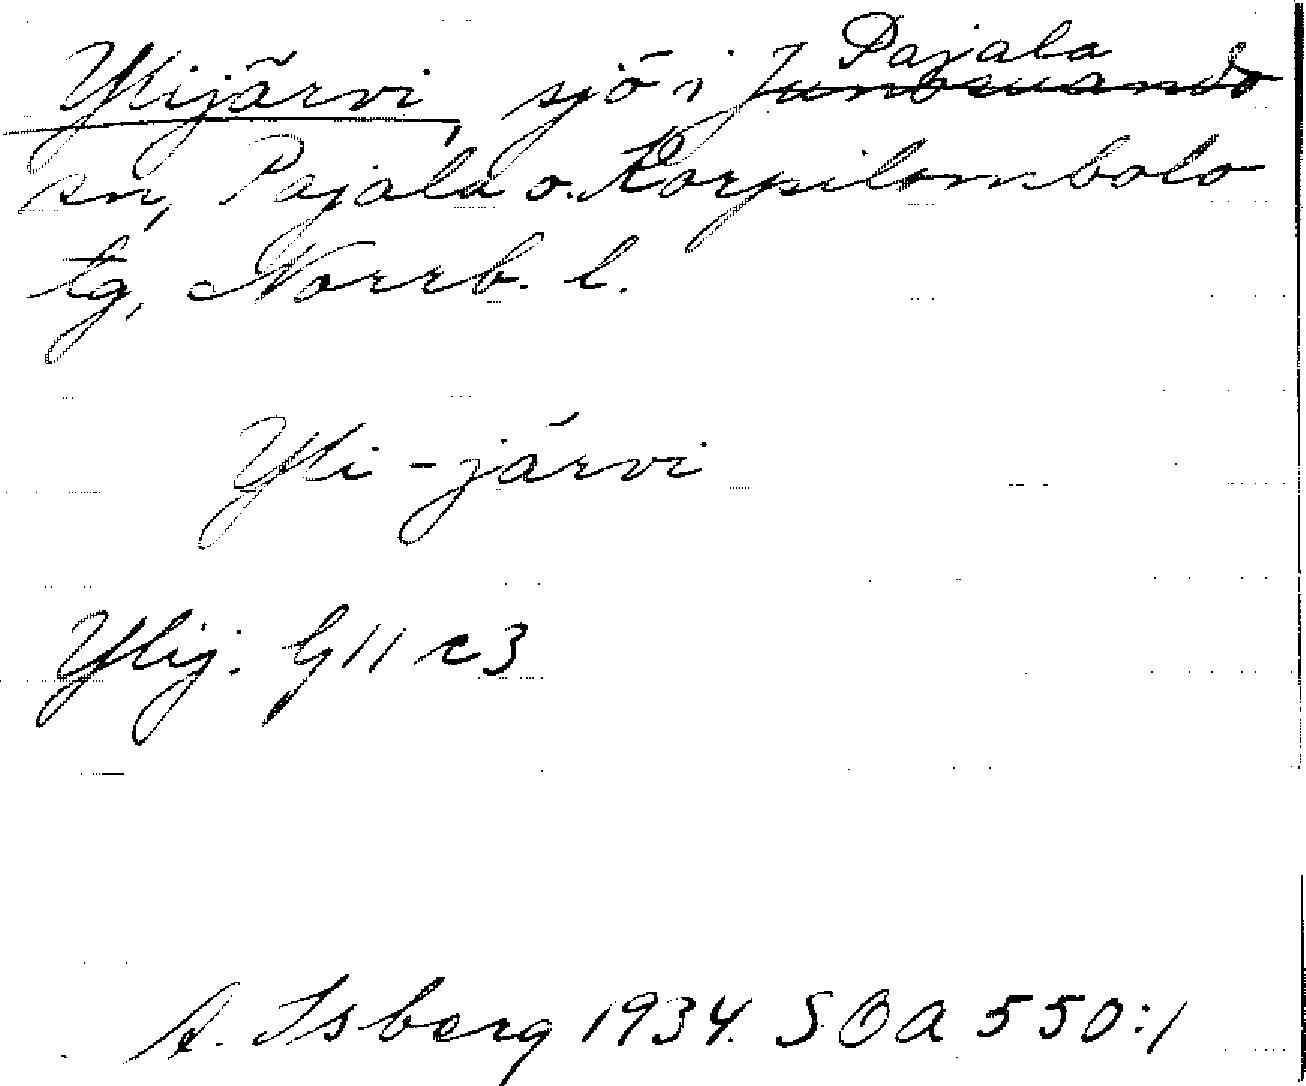 Ylijärvi, sjö i Junosuando Pajala
sn, Pajala o. Korpilombolo
tg, Norrb. l.
Yli-järvi
Ylij. G11 c3
A. Isberg 1934. SOA 550:1